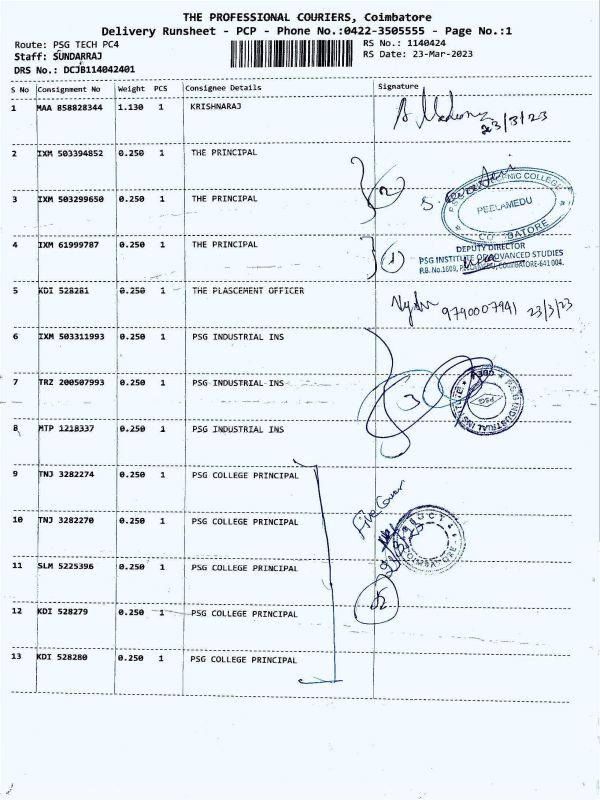 THE PROFESSIONAL COURIERS, Coimbatore
Delivery Runsheet - PCP - Phone No.:0422-3505555 - Page No.:1
Route: PSG TECH PC4
RS No.: 1140424
Staff: SUNDARRAJ
RS Date: 23-Mar-2023
DRS No.: DCJB114042401
S No Consignment No Weight PCS Consignee Details Signature
1 MAA 858828344 1.130 1 KRISHNARAJ
23/3/23
2 IXM 503394852 0.250 1 THE PRINCIPAL
2
3 IXM 503299650 0.250 1 THE PRINCIPAL
PEELAMEDU
COIMBATORE
4 IXM 61999787 0.250 1 THE PRINCIPAL
1
DEPUTY DIRECTOR
PSG INSTITUTE OF ADVANCED STUDIES
P.B. No.1609, PEELAMEDU, COIMBATORE-641 004.
5 KDI 528281 0.250 1 THE PLASCEMENT OFFICER
9790007941 23/3/23
6 IXM 503311993 0.250 1 PSG INDUSTRIAL INS
7 TRZ 200507993 0.250 1 PSG INDUSTRIAL INS
3
PSG INDUSTRIAL INSTITUTE
PSG
8 MTP 1218337 0.250 1 PSG INDUSTRIAL INS
9 TNJ 3282274 0.250 1 PSG COLLEGE PRINCIPAL
Five Cover
10 TNJ 3282270 0.250 1 PSG COLLEGE PRINCIPAL
COIMBATORE
11 SLM 5225396 0.250 1 PSG COLLEGE PRINCIPAL
5
12 KDI 528279 0.250 1 PSG COLLEGE PRINCIPAL
13 KDI 528280 0.250 1 PSG COLLEGE PRINCIPAL